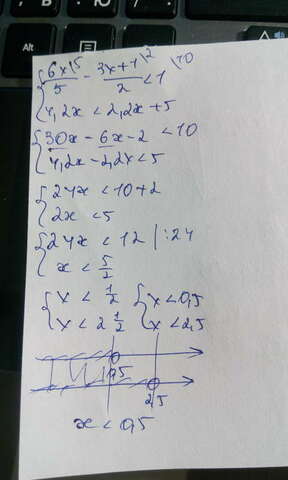 Alt
{ 6x\5/5 - 3x+1\2/2 < 1\10
4,2x < 2,2x + 5
{ 30x - 6x - 2 < 10
4,2x - 2,2x < 5
{ 24x < 10 + 2
2x < 5
{ 24x < 12 | :24
x < 5/2
{ x < 1/2 { x < 0,5
x < 2 1/2 x < 2,5
0,5
2,5
x < 0,5